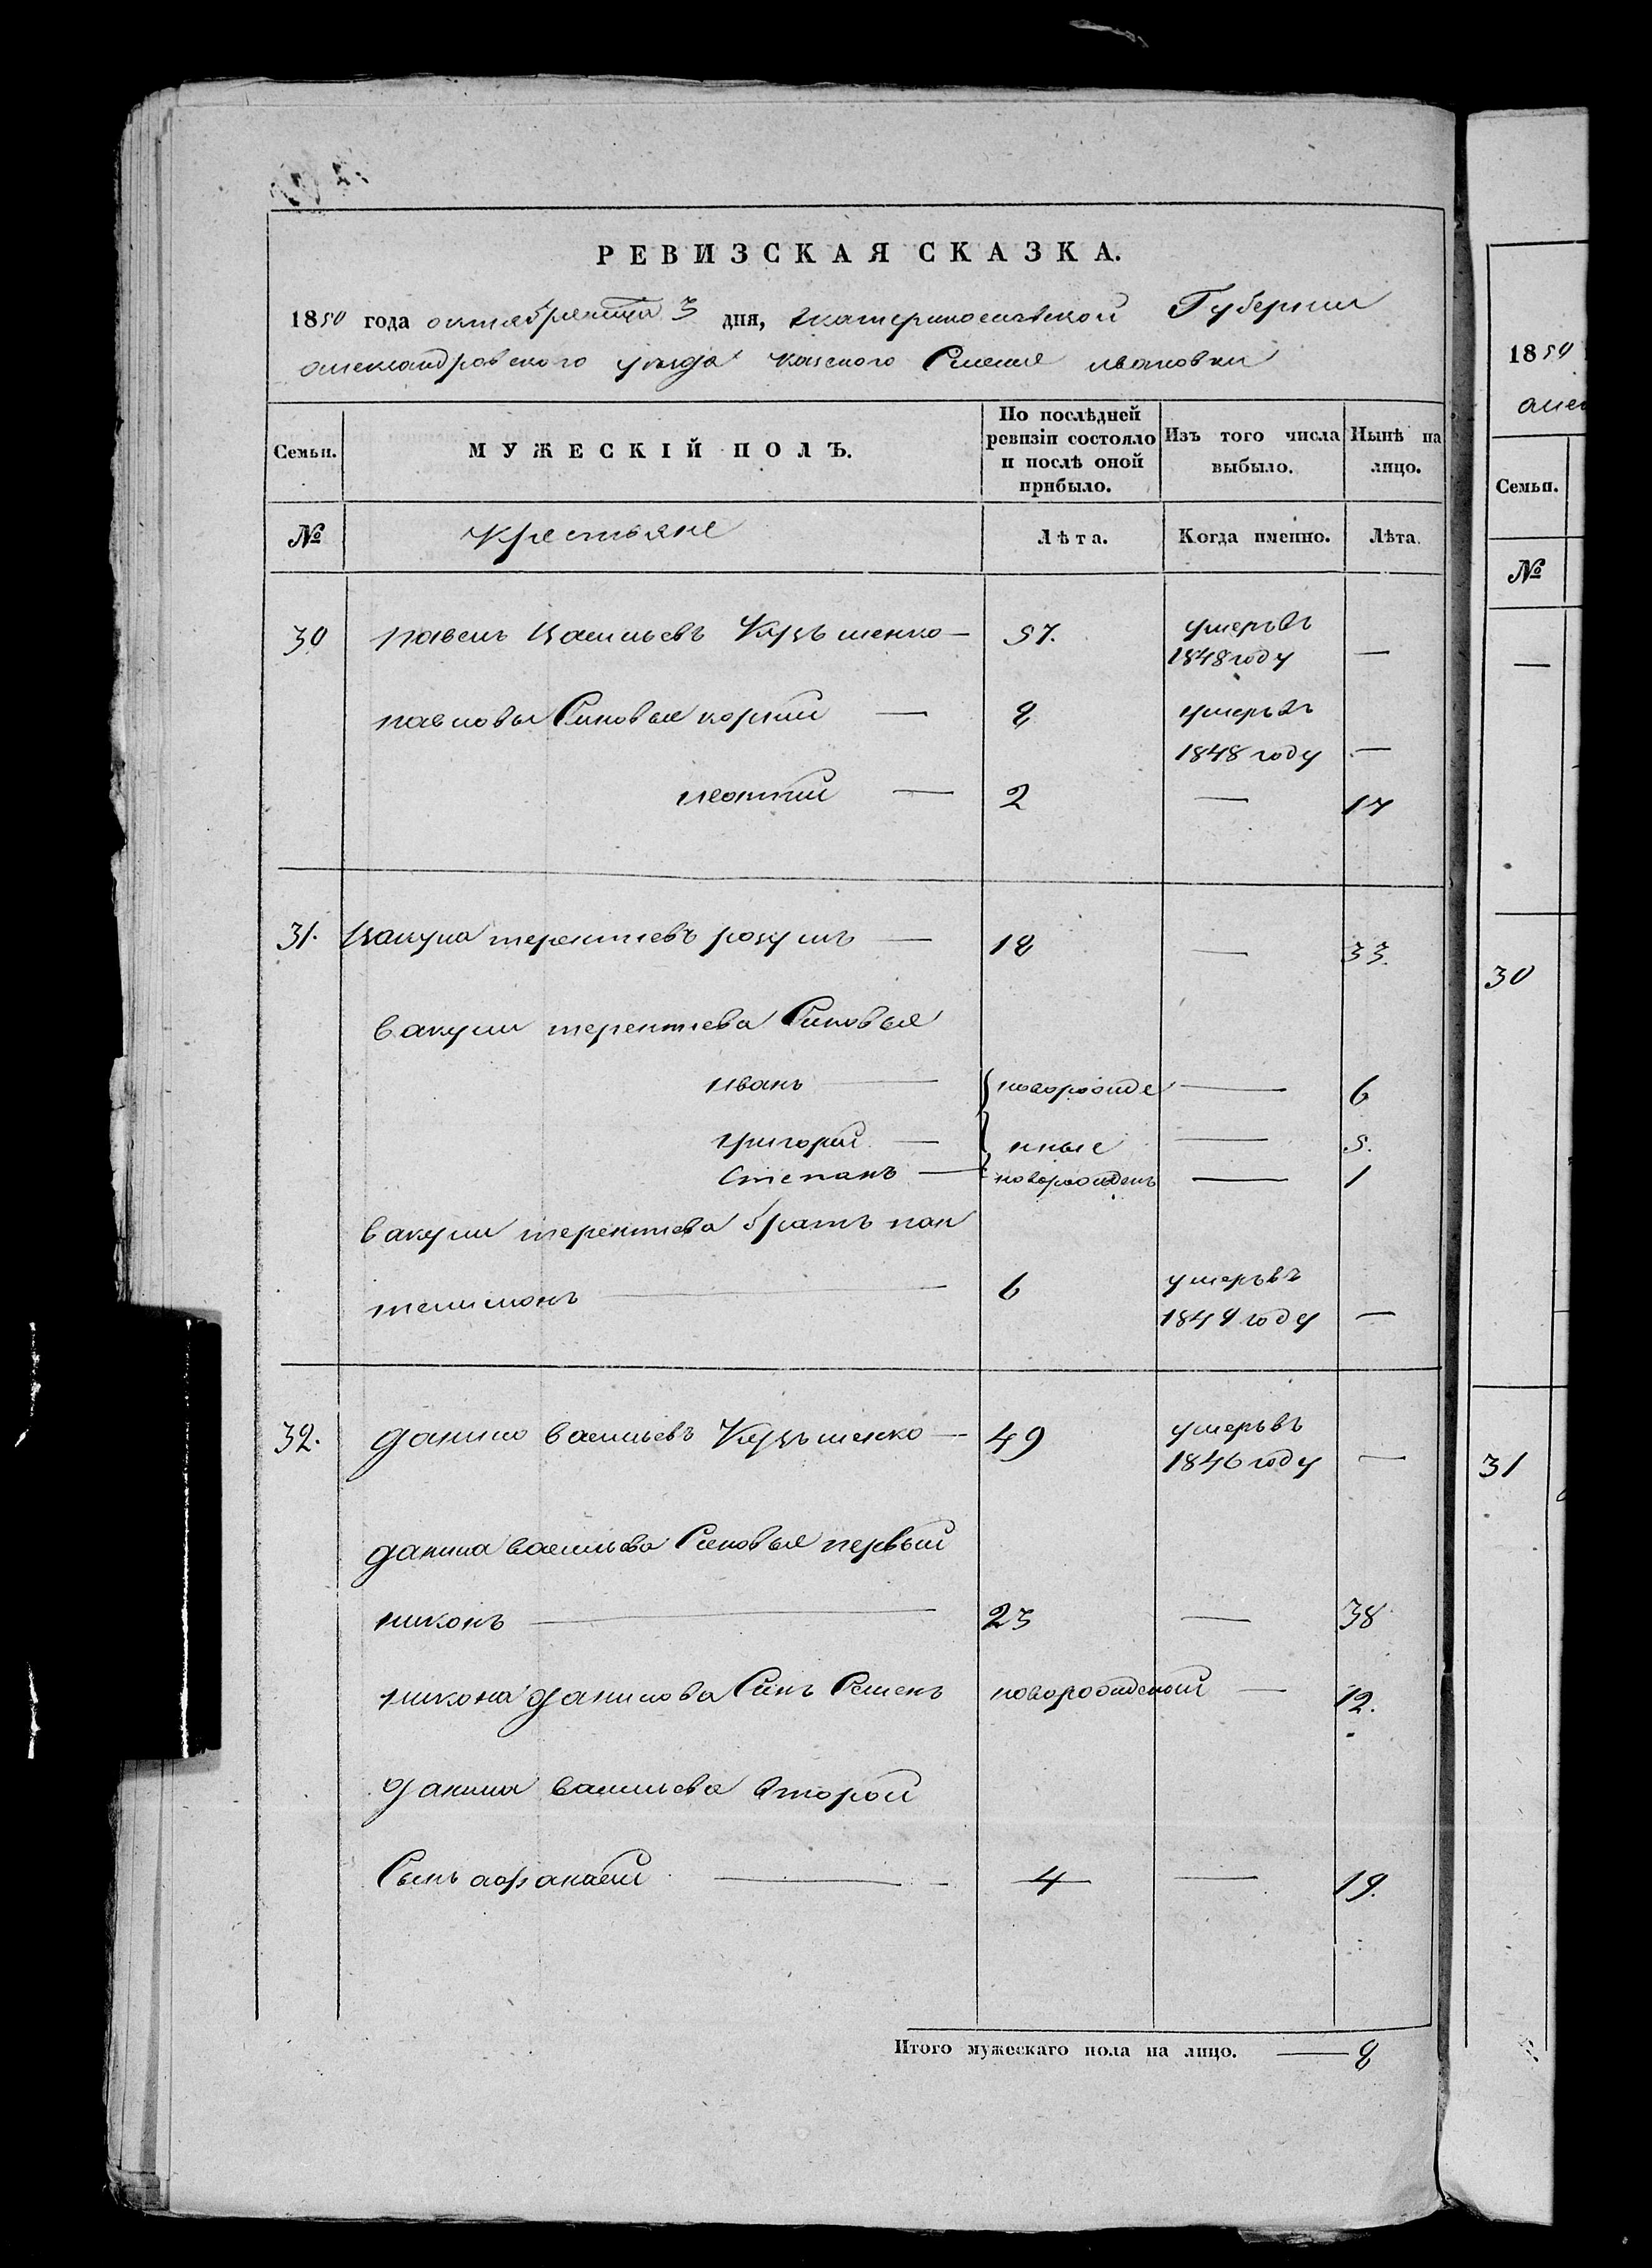 РЕВИЗСКАЯ СКАЗКА.
1850 года октября месяца 3 дня, екатеринославской Губернии
александровского уезда казеного Селения ивановки
Семьи. МУЖЕСКІЙ ПОЛЪ. По послѣдней ревизіи состояло и послѣ оной прибыло. Изъ того числа выбыло. Нынѣ на лицо.
№ Крестьяне Лѣта. Когда именно. Лѣта.
30 павелъ Васильевъ 57. умеръ въ
1848 году —
павловы Синовья — 8 умеръ въ
1848 году —
леонтий — 2 — 17
31. Вакула терентиевъ — 18 — 33.
вакули терентиева Синовья
иванъ — новорожде — 6
григорий — нные — 5.
Степанъ — новорожденъ — 1
вакули терентиева братъ пан
телимонъ — 6 умеръ въ
1849 году —
32. данило васильевъ — 49 умеръ въ
1846 году —
данила васильева Синовья первый
никонъ — 23 — 38
никона данилова Синъ Семенъ новорожденой — 12.
данила васильева второй
Сынъ афанасий — 4 — 19.
Итого мужескаго пола на лицо. — 8
1850
алек
Семьи.
№
—
30
31